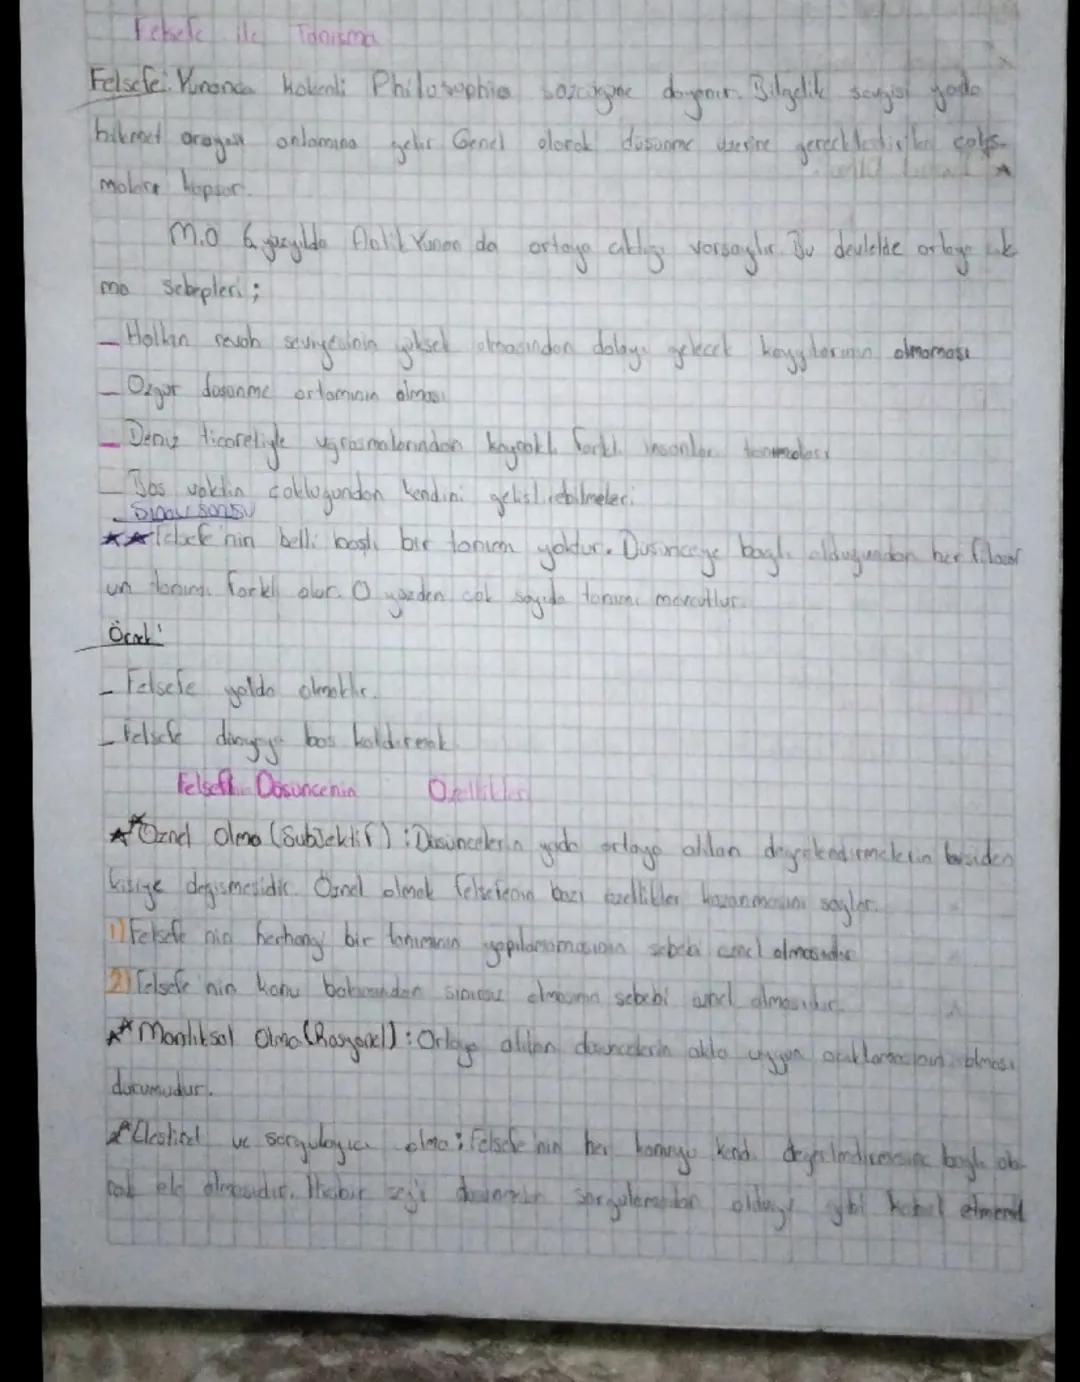 Felsefe ile Tanısma
Felsefe: Yunanca kokenli Philosophia sozcugune dayanır. Bilgelik sevgisi yada
hikmet arayısı anlamına gelir Genel olarak dusunme uzerine gerceklestirilen calıs-
maları kapsar.
M.O 6. yuzyılda Antik Yunan da ortaya cıktıgı varsayılır. Bu devletde ortaya cık
ma sebepleri;
- Halkın revah seviyesinin yuksek olmasından dolayı gelecek kaygılarının olmaması
- Ozgur dusunme ortamının olması
- Deniz ticaretiyle ugrasmalarından kaynaklı farklı insanlar tanımaları
- Bos vaktin coklugundan kendini gelistirebilmeleri
- Sınav sorusu
★★ Felsefe'nin belli baslı bir tanımı yoktur. Dusunceye baglı oldugundan her filozof
un tanımı farklı olur. O yuzden cok sayıda tanımı mevcuttur.
Örnek:
- Felsefe yolda olmaktır.
- Felsefe dunyaya bas kaldırmak
Felsefi Dusuncenin Ozellikleri
★★ Öznel Olma (Subjektif): Dusuncelerin yada ortaya atılan degerlendirmelerin kisiden
kisiye degismesidir. Öznel olmak felsefenin bazı ozellikler kazanmasını saglar.
1) Felsefe nin herhangi bir tanımının yapılamamasının sebebi oznel olmasıdır
2) Felsefe'nin konu bakımından sınırsız olmasının sebebi oznel olmasıdır.
★★ Mantıksal Olma (Rasyonel): Ortaya atılan dusuncelerin akla uygun olması
durumudur.
★★ Elestirel ve sorgulayıcı olma: Felsefe'nin her konuyu kendi degerlendirmesine baglı ola-
rak ele almasıdır. Hicbir seyi sorgulamadan oldugu gibi kabul etmemek